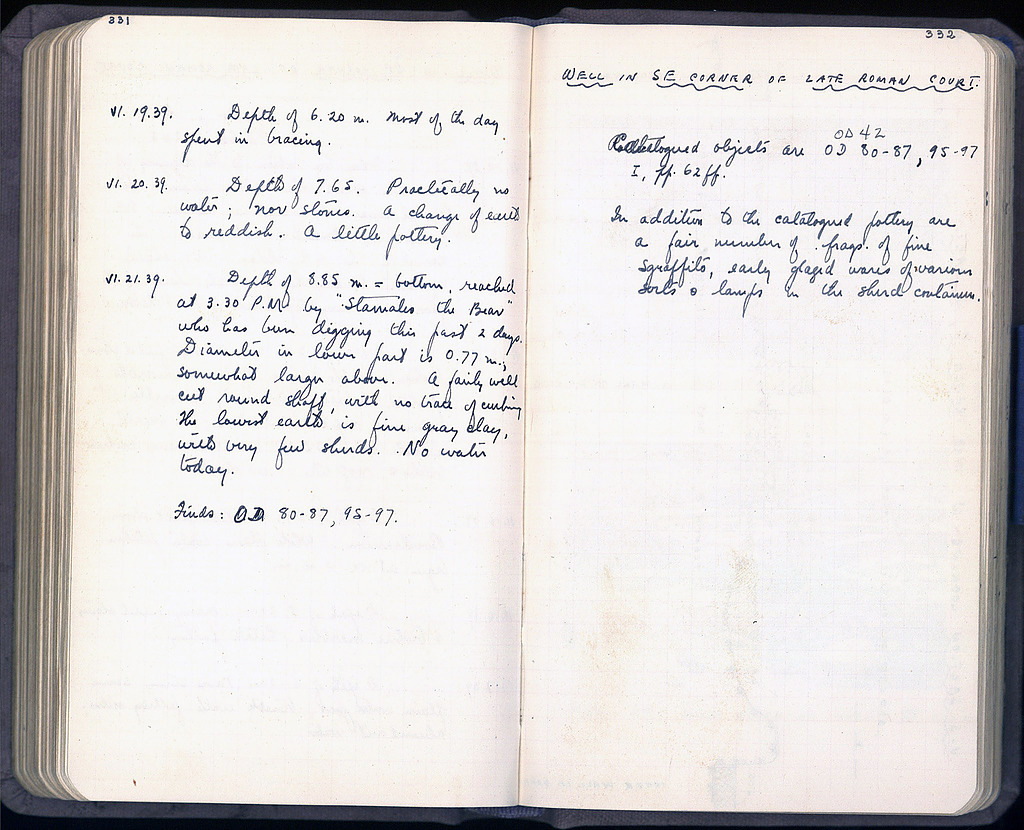 331
VI. 19.39. Depth of 6.20 m. Most of the day
spent in bracing.
VI. 20. 39. Depth of 7.65. Practically no
water; nor stones. A change of earth
to reddish. A little pottery.
VI. 21. 39. Depth of 8.85 m. = bottom, reached
at 3.30 P.M. by "Stamates the Bear"
who has been digging this past 2 days.
Diameter in lower part is 0.77 m.;
somewhat larger above. A fairly well
cut round shaft, with no trace of curbing
The lowest earth is fine gray clay,
with very few sherds. No water
today.
Finds: OD 80-87, 95-97.
332
WELL IN SE CORNER OF LATE ROMAN COURT.
OD 42
Catalogued objects are OD 80-87, 95-97
I, pp. 62 ff.
In addition to the catalogued pottery are
a fair number of frags. of fine
Sgraffito, early glazed wares of various
sorts & lamps in the sherd containers.